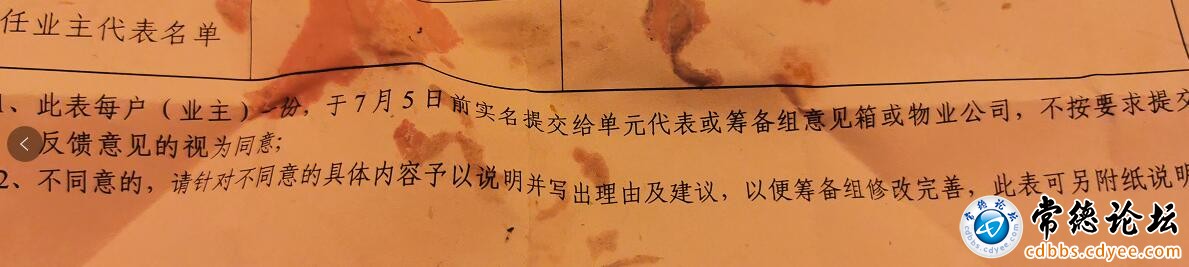 任业主代表名单
1、此表每户（业主）一份，于7月5日前实名提交给单元代表或筹备组意见箱或物业公司，不按要求提交
反馈意见的视为同意；
2、不同意的，请针对不同意的具体内容予以说明并写出理由及建议，以便筹备组修改完善，此表可另附纸说明
常德论坛
cdbbs.cdyee.com